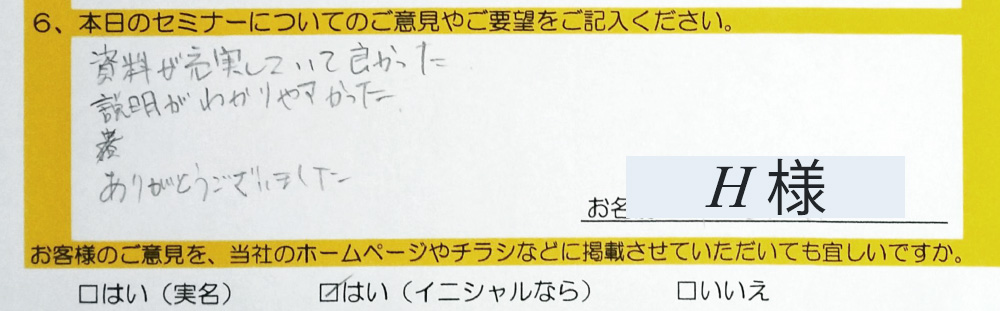 6、本日のセミナーについてのご意見やご要望をご記入ください。
資料が充実していて良かった
説明がわかりやすかった
ありがとうございました
お名
H 様
お客様のご意見を、当社のホームページやチラシなどに掲載させていただいても宜しいですか。
□はい（実名） ☑はい（イニシャルなら） □いいえ